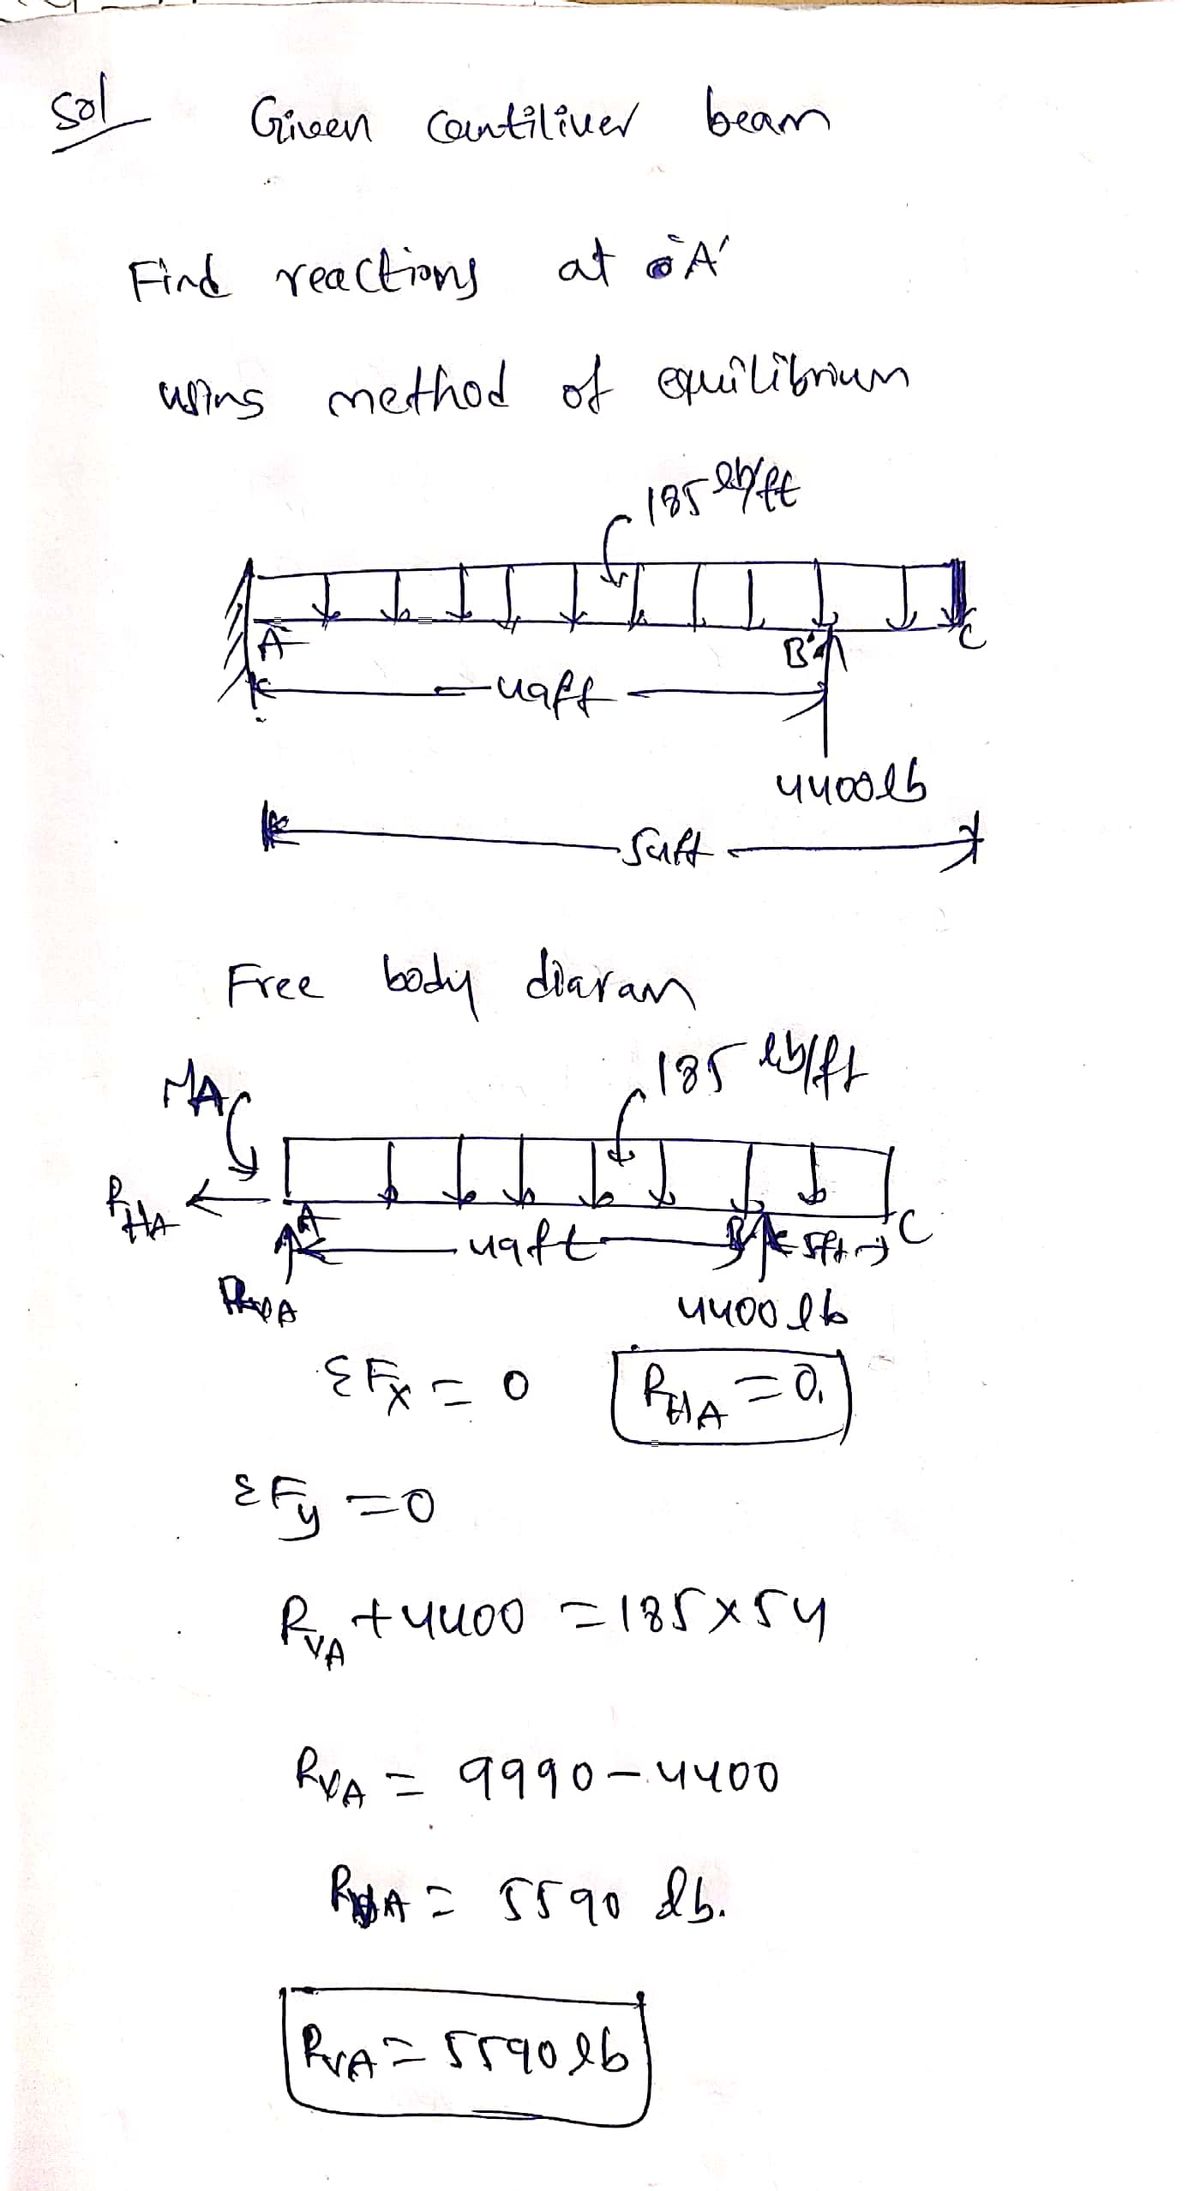 Sol Given cantiliver beam
Find reactions at 'A'
using method of equilibrium
185 lb/ft
A B C
49ft
4400lb
54ft
Free body diaram
MA
185 lb/ft
RHA
A B C
49ft 5ft
RVA
4400 lb
ΣFx = 0 RHA = 0.
ΣFy = 0
RVA + 4400 = 185 × 54
RVA = 9990 - 4400
RVA = 5590 lb.
RVA = 5590 lb